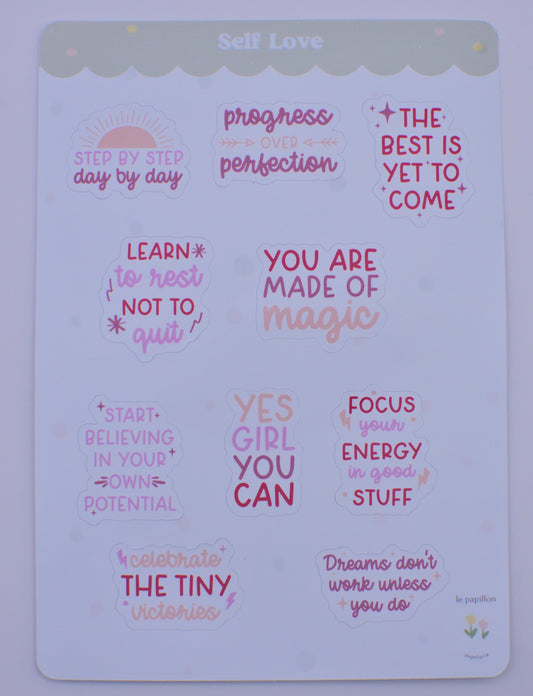 Self Love
STEP BY STEP
day by day
progress
OVER
perfection
THE
BEST IS
YET TO
COME
LEARN
to rest
NOT TO
quit
YOU ARE
MADE OF
magic
START
BELIEVING
IN YOUR
OWN
POTENTIAL
YES
GIRL
YOU
CAN
FOCUS
your
ENERGY
in good
STUFF
celebrate
THE TINY
victories
Dreams don't
work unless
you do
le papillon
papelaria